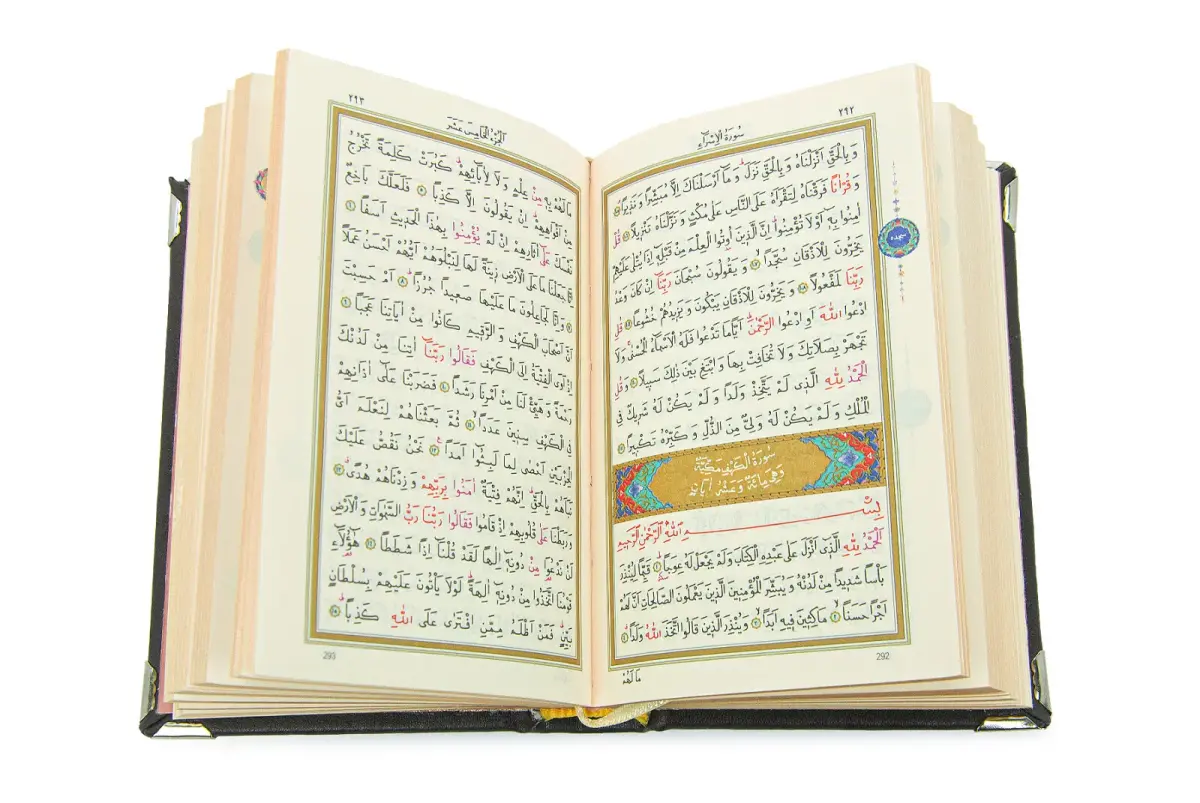 ٢٩٢
سُورَةُ الْاِسْرَاءِ
وَبِالْحَقِّ اَنْزَلْنَاهُ وَبِالْحَقِّ نَزَلَ وَمَا اَرْسَلْنَاكَ اِلَّا مُبَشِّرًا وَنَذِيرًا ﴿١٠٥﴾
وَقُرْاٰنًا فَرَقْنَاهُ لِتَقْرَاَهُ عَلَى النَّاسِ عَلٰى مُكْثٍ وَنَزَّلْنَاهُ تَنْزِيلًا ﴿١٠٦﴾ قُلْ
اٰمِنُوا بِهِ اَوْ لَا تُؤْمِنُوا اِنَّ الَّذِينَ اُوتُوا الْعِلْمَ مِنْ قَبْلِهِ اِذَا يُتْلٰى عَلَيْهِمْ
يَخِرُّونَ لِلْاَذْقَانِ سُجَّدًا ﴿١٠٧﴾ وَيَقُولُونَ سُبْحَانَ رَبِّنَا اِنْ كَانَ وَعْدُ
رَبِّنَا لَمَفْعُولًا ﴿١٠٨﴾ وَيَخِرُّونَ لِلْاَذْقَانِ يَبْكُونَ وَيَزِيدُهُمْ خُشُوعًا ﴿١٠٩﴾ قُلِ
ادْعُوا اللّٰهَ اَوِ ادْعُوا الرَّحْمٰنَ اَيًّا مَا تَدْعُوا فَلَهُ الْاَسْمَاءُ الْحُسْنٰى وَلَا
تَجْهَرْ بِصَلَاتِكَ وَلَا تُخَافِتْ بِهَا وَابْتَغِ بَيْنَ ذٰلِكَ سَبِيلًا ﴿١١٠﴾ وَقُلِ
الْحَمْدُ لِلّٰهِ الَّذِي لَمْ يَتَّخِذْ وَلَدًا وَلَمْ يَكُنْ لَهُ شَرِيكٌ فِي
الْمُلْكِ وَلَمْ يَكُنْ لَهُ وَلِيٌّ مِنَ الذُّلِّ وَكَبِّرْهُ تَكْبِيرًا ﴿١١١﴾
سُورَةُ الْكَهْفِ مَكِّيَّةٌ
وَهِيَ مِائَةٌ وَعَشْرُ اٰيَاتٍ
بِسْمِ اللّٰهِ الرَّحْمٰنِ الرَّحِيمِ
اَلْحَمْدُ لِلّٰهِ الَّذِي اَنْزَلَ عَلٰى عَبْدِهِ الْكِتَابَ وَلَمْ يَجْعَلْ لَهُ عِوَجًا ﴿١﴾ قَيِّمًا لِيُنْذِرَ
بَاْسًا شَدِيدًا مِنْ لَدُنْهُ وَيُبَشِّرَ الْمُؤْمِنِينَ الَّذِينَ يَعْمَلُونَ الصَّالِحَاتِ اَنَّ لَهُمْ
اَجْرًا حَسَنًا ﴿٢﴾ مَاكِثِينَ فِيهِ اَبَدًا ﴿٣﴾ وَيُنْذِرَ الَّذِينَ قَالُوا اتَّخَذَ اللّٰهُ وَلَدًا ﴿٤﴾
سجده
292
مَا لَهُمْ
٢٩٣
اَلْجُزْءُ الْخَامِسَ عَشَرَ
مَا لَهُمْ بِهِ مِنْ عِلْمٍ وَلَا لِاٰبَائِهِمْ كَبُرَتْ كَلِمَةً تَخْرُجُ
مِنْ اَفْوَاهِهِمْ اِنْ يَقُولُونَ اِلَّا كَذِبًا ﴿٥﴾ فَلَعَلَّكَ بَاخِعٌ
نَفْسَكَ عَلٰى اٰثَارِهِمْ اِنْ لَمْ يُؤْمِنُوا بِهٰذَا الْحَدِيثِ اَسَفًا ﴿٦﴾
اِنَّا جَعَلْنَا مَا عَلَى الْاَرْضِ زِينَةً لَهَا لِنَبْلُوَهُمْ اَيُّهُمْ اَحْسَنُ عَمَلًا
﴿٧﴾ وَاِنَّا لَجَاعِلُونَ مَا عَلَيْهَا صَعِيدًا جُرُزًا ﴿٨﴾ اَمْ حَسِبْتَ
اَنَّ اَصْحَابَ الْكَهْفِ وَالرَّقِيمِ كَانُوا مِنْ اٰيَاتِنَا عَجَبًا ﴿٩﴾
اِذْ اَوَى الْفِتْيَةُ اِلَى الْكَهْفِ فَقَالُوا رَبَّنَا اٰتِنَا مِنْ لَدُنْكَ
رَحْمَةً وَهَيِّئْ لَنَا مِنْ اَمْرِنَا رَشَدًا ﴿١٠﴾ فَضَرَبْنَا عَلٰى اٰذَانِهِمْ
فِي الْكَهْفِ سِنِينَ عَدَدًا ﴿١١﴾ ثُمَّ بَعَثْنَاهُمْ لِنَعْلَمَ اَيُّ
الْحِزْبَيْنِ اَحْصٰى لِمَا لَبِثُوا اَمَدًا ﴿١٢﴾ نَحْنُ نَقُصُّ عَلَيْكَ
نَبَاَهُمْ بِالْحَقِّ اِنَّهُمْ فِتْيَةٌ اٰمَنُوا بِرَبِّهِمْ وَزِدْنَاهُمْ هُدًى ﴿١٣﴾
وَرَبَطْنَا عَلٰى قُلُوبِهِمْ اِذْ قَامُوا فَقَالُوا رَبُّنَا رَبُّ السَّمٰوَاتِ وَالْاَرْضِ
لَنْ نَدْعُوَا مِنْ دُونِهِ اِلٰهًا لَقَدْ قُلْنَا اِذًا شَطَطًا ﴿١٤﴾ هٰؤُلَاءِ
قَوْمُنَا اتَّخَذُوا مِنْ دُونِهِ اٰلِهَةً لَوْلَا يَاْتُونَ عَلَيْهِمْ بِسُلْطَانٍ
بَيِّنٍ فَمَنْ اَظْلَمُ مِمَّنِ افْتَرٰى عَلَى اللّٰهِ كَذِبًا ﴿١٥﴾
293